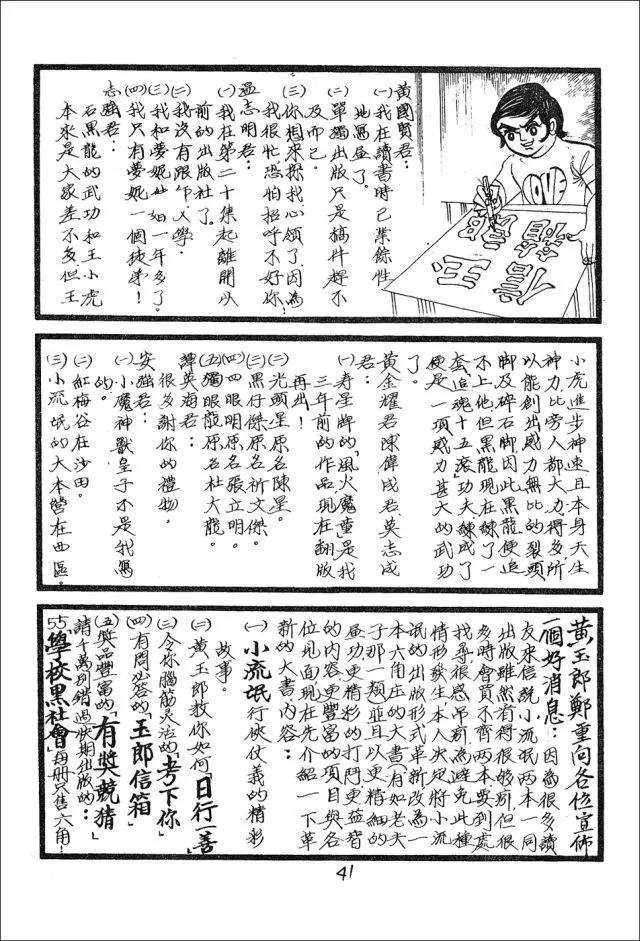 玉郎信箱
LOVE
黃國賢君：
(一)我在讀書時已業餘性
地寫屋了。
(二)單獨出版只是稿件趕不
及而已。
(三)你想來探我心領了因為
我很忙恐怕招呼不好你！
溫志明君：
(一)我在第二十集起離開以
前的出版社了。
(二)我沒有跟乍人學。
(三)我和夢妮 一年多了。
(四)我只有夢妮一個徒弟！
志強君：
石黑龍的武功和王小虎
本來是大家差不多但王
小虎進步神速且本身天生
神力比旁人都大力得多所
以能創出威力無比的裂頭
脚及碎石脚因此黑龍便追
不上他但黑龍現在練了一
套追魂十五滾功夫練成了
便是一項威力甚大的武功
了。
黃金耀君陳偉成君英志成
君：
(一)寿星牌的「風火魔童」是我
三年前的作品現在翻版
再出！
(二)光頭星原名陳星。
(三)黑仔傑原名祈文傑。
(四)四眼明原名張立明。
(五)獨眼龍原名杜大龍。
譚英海君：
很多謝你的禮物。
安強君：
(一)小魔神獸皇子不是我寫
的。
(二)紅梅谷在沙田。
(三)小流氓的大本營在西區。
黃玉郎鄭重向各位宣佈
一個好消息：因為很多讀
友來信説小流氓兩本一同
出版雖然看得很够癮但很
多時會買不齊兩本要到處
找尋很感吊癮為避免此種
情形發生本人決定將小流
氓的出版形式革新改為一
本六角庄的大書有如老夫
子那一類並且以更精細的
屋功更精彩的打鬥更益智
的內容更豐富的項目與各
位見面現在先介紹一下革
新的大書內容：
(一)小流氓行俠仗義的精彩
故事。
(二)黃玉郎教你如何「日行一善」
(三)令你腦筋灵活的「考下你」
(四)有問必答的「玉郎信箱」
(五)獎品豐富的「有獎競猜」
請千萬别錯過快期出版的：
55「學校黑社會」每册只售六角！
41